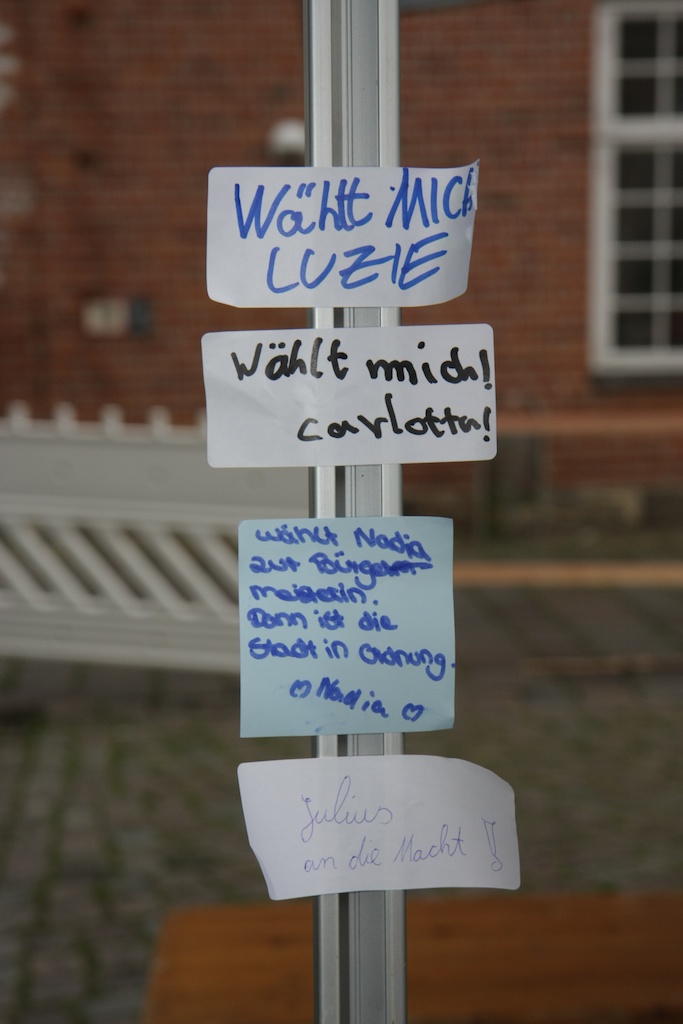 Wählt MICH
LUZIE
Wählt mich!
carlotta!
wählt Nadia
zur Bürger
meisterin.
Dann ist die
Stadt in Ordnung.
♡ Nadia ♡
Julius
an die Macht!